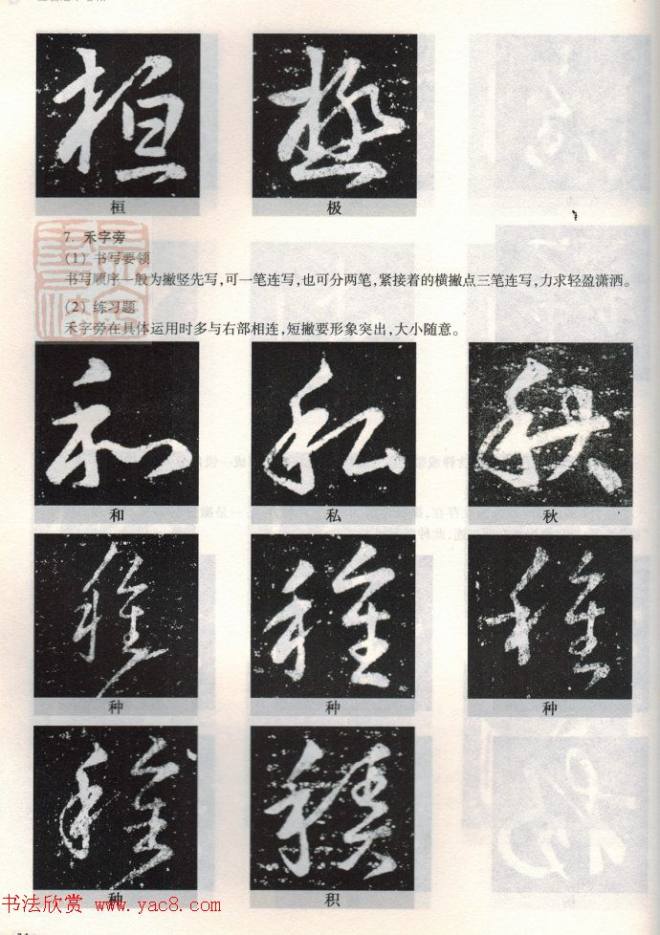 桓 极
7. 禾字旁
(1) 书写要领
书写顺序一般为撇竖先写,可一笔连写,也可分两笔,紧接着的横撇点三笔连写,力求轻盈潇洒。
(2) 练习题
禾字旁在具体运用时多与右部相连,短撇要形象突出,大小随意。
和 私 秋
种 种 种
种 积
书法欣赏 www.yac8.com